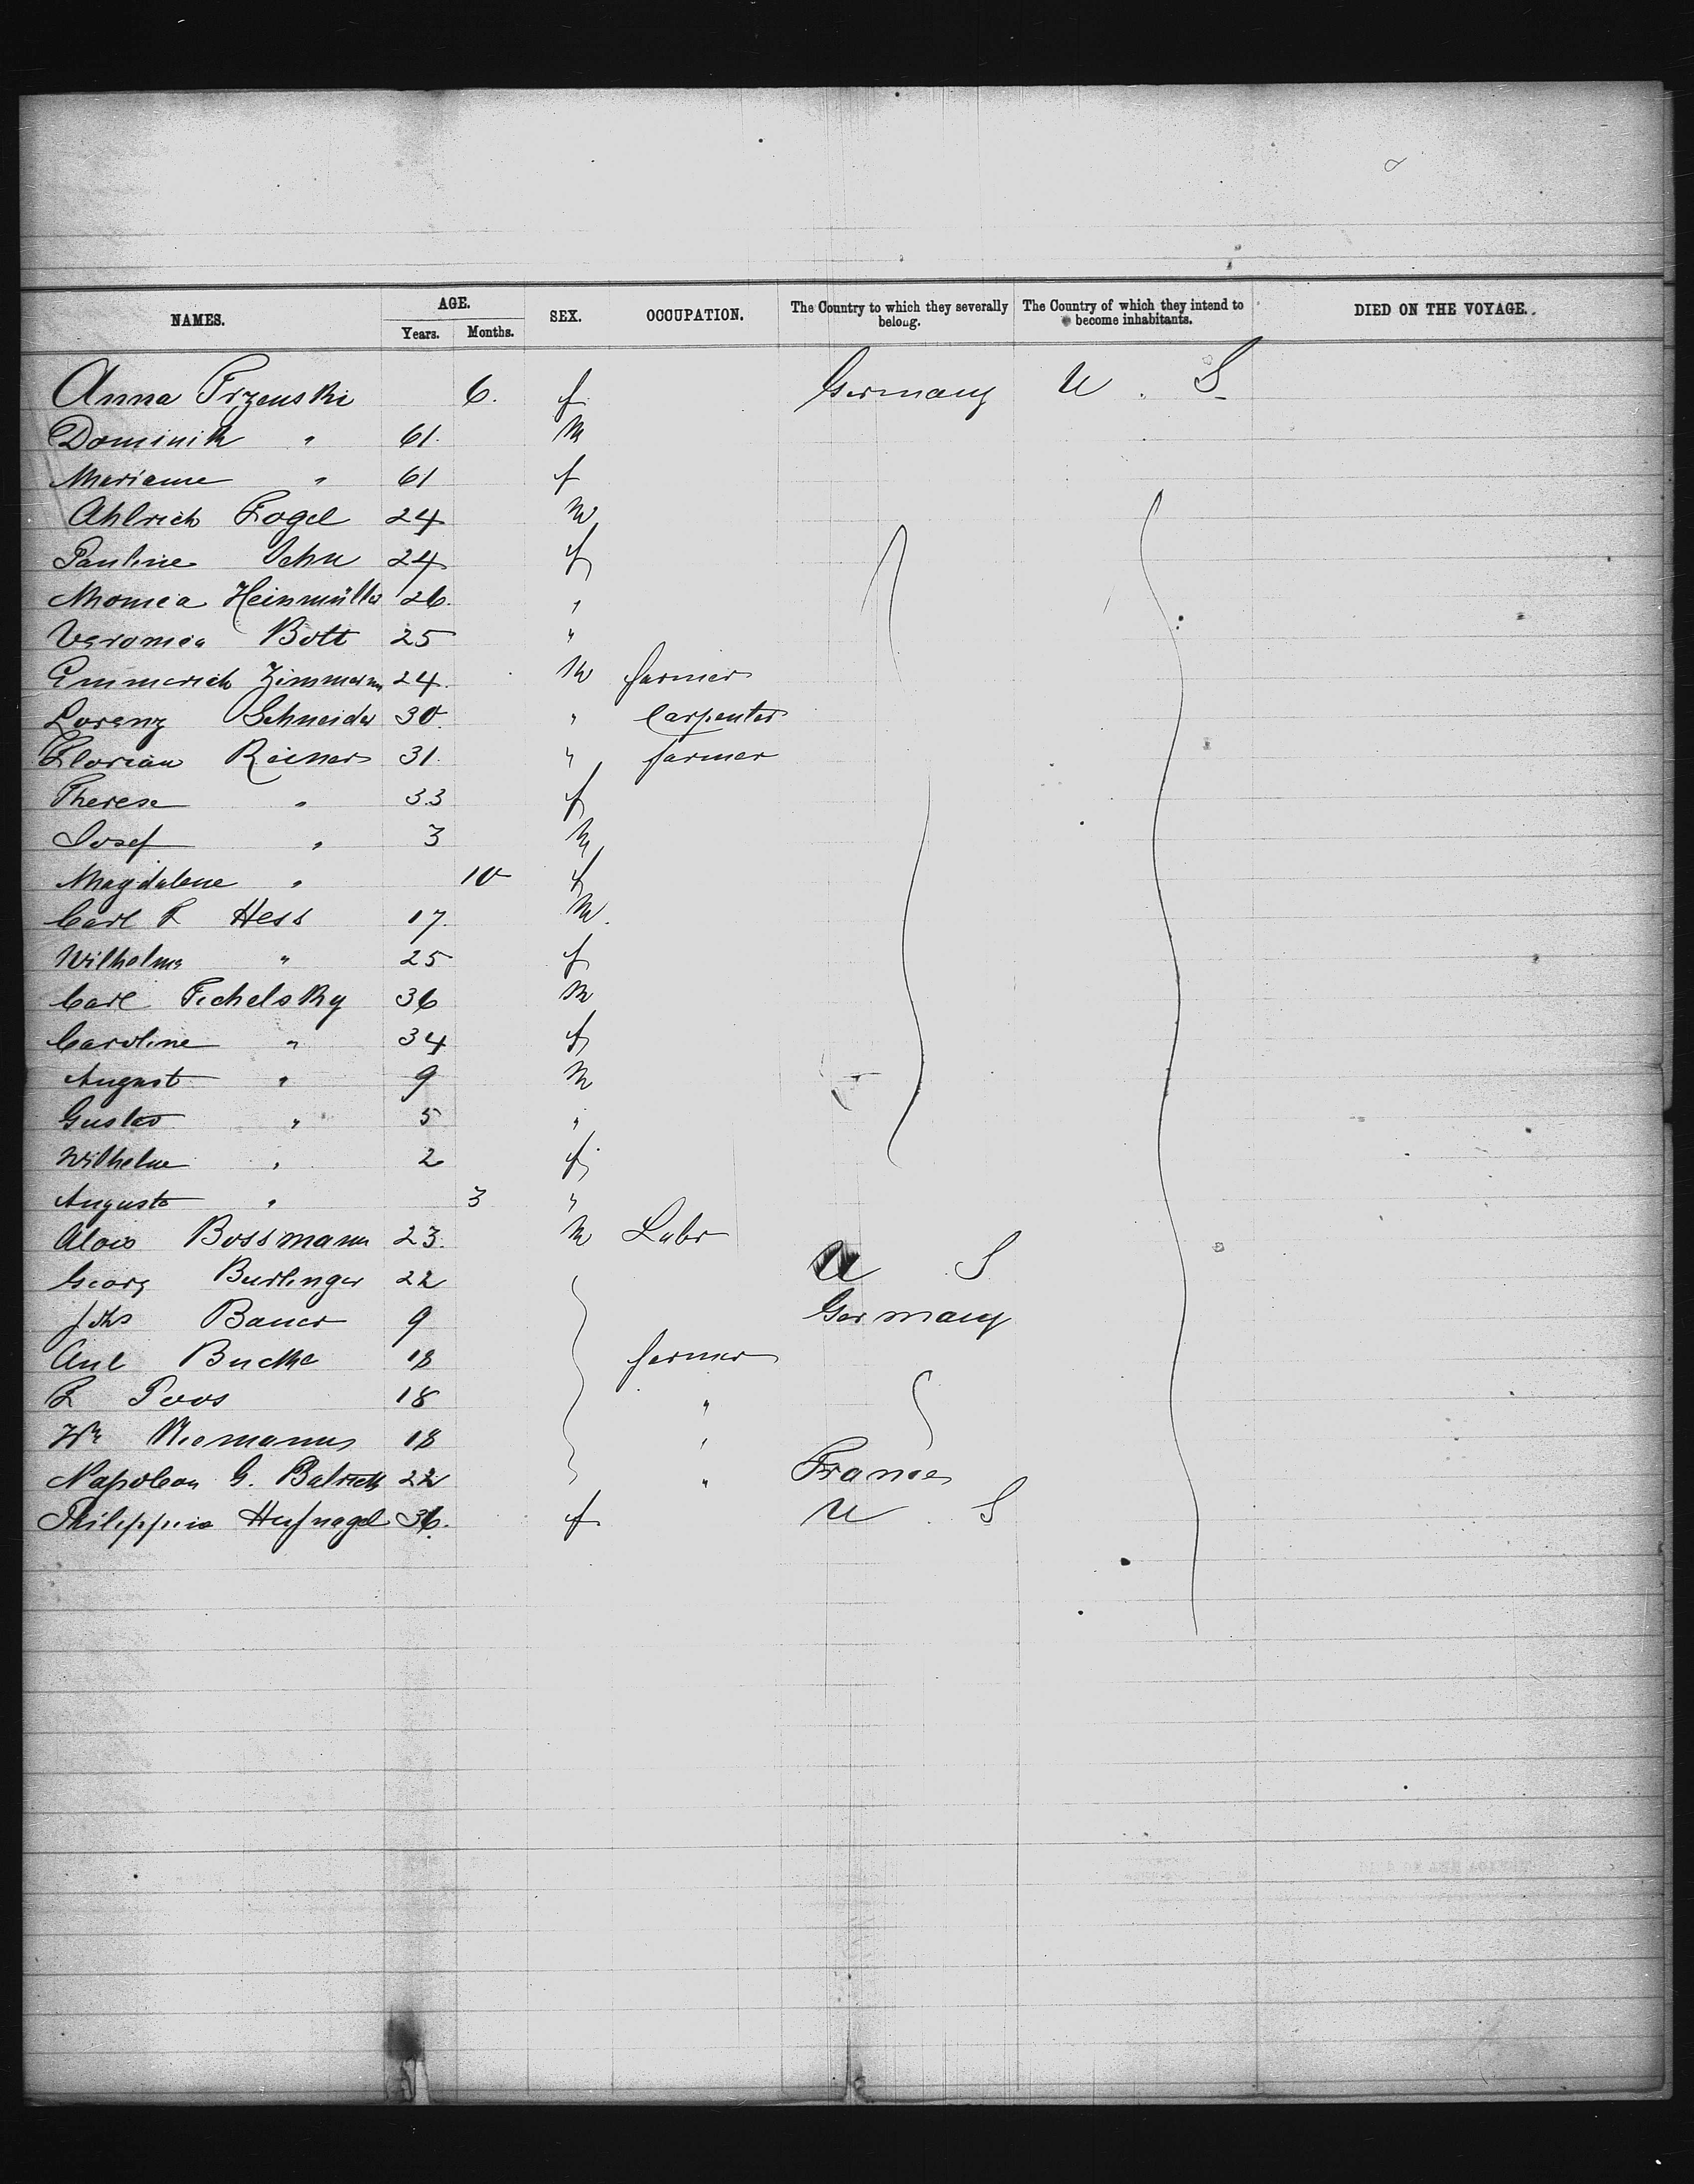 NAMES. AGE. SEX. OCCUPATION. The Country to which they severally belong. The Country of which they intend to become inhabitants. DIED ON THE VOYAGE.
Years. Months.
Anna Trzenski 6. f Germany U. S.
Dominik " 61. M
Marianne " 61 f
Ahlrich Fogel 24 M
Pauline 24 f
Monica Heinmüller 26. "
Veronica Bott 25 "
Emmerich Zimmerm 24. M farmer
Lorenz Schneider 30. " Carpenter
Florian Reiner 31. " farmer
Therese " 33 f
Josef " 3 M
Magdalene " 10 f
Carl F Hess 17. M.
Wilhelma " 25 f
Carl Tichelsky 36 M
Caroline " 34 f
August " 9 M
Gustav " 5 "
Wilhelme " 2 f
Auguste " 3 "
Alois Bossmann 23. M Labr
Georg Burlinger 22 U S
Johs Bauer 9 Germany
Buckke 18 farmer
F Poos 18 "
Wm Niemanns 18 "
Napoleon G. 22 " France
Philippine Hufnagel 36. f U. S